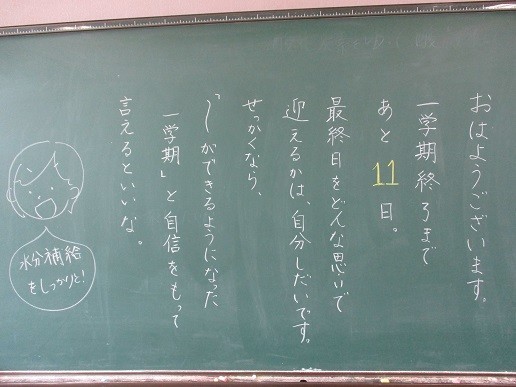 おはようございます。
一学期終るまで
あと11日。
最終日をどんな思いで、
迎えるかは、自分しだいです。
せっかくなら、
「〜ができるようになった
一学期」と自信をもって
言えるといいな。
水分補給
をしっかりと!